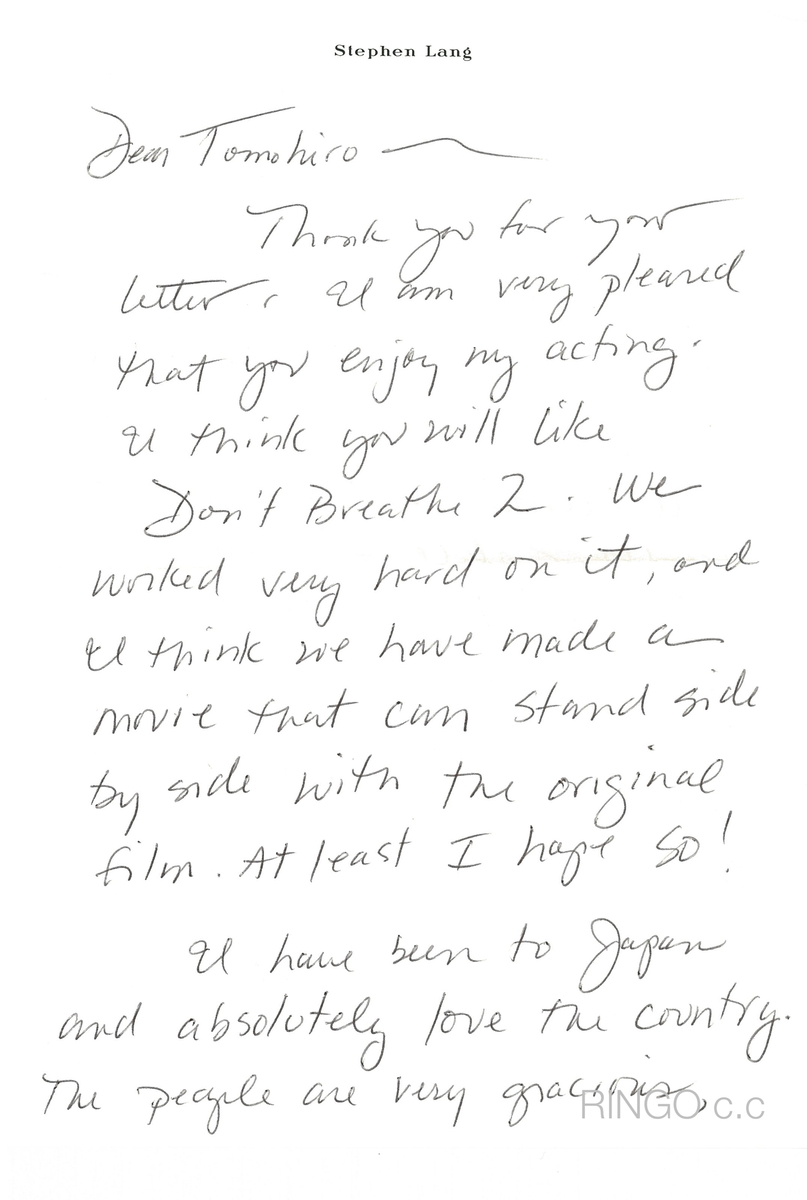 Stephen Lang
Dear Tomohiro —
Thank you for your
letter. I am very pleased
that you enjoy my acting.
I think you will like
Don't Breathe 2. We
worked very hard on it, and
I think we have made a
movie that can stand side
by side with the original
film. At least I hope so!
I have been to Japan
and absolutely love the country.
The people are very gracious,
RINGO c.c